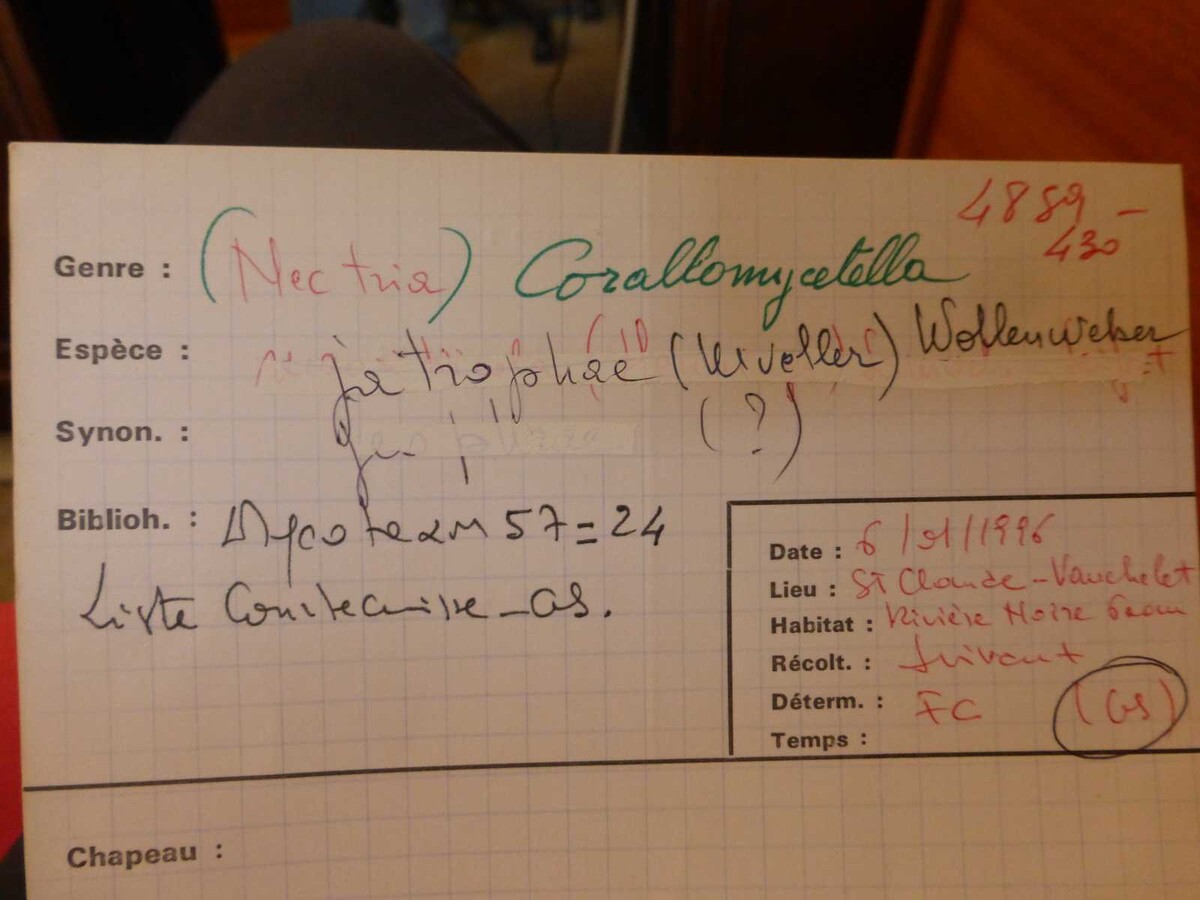 4889 -
430
Genre : (Nectria) Corallomycetella
Espèce : jatrophae (Kweller) Wollenweber
Synon. : (?)
Biblioh. : Mycoteam 57=24
Liste Courtecuisse - GS.
Date : 6/01/1996
Lieu : St Claude - Vauchelet
Habitat : Rivière Noire
Récolt. : suivant
Déterm. : FC (GS)
Temps :
Chapeau :